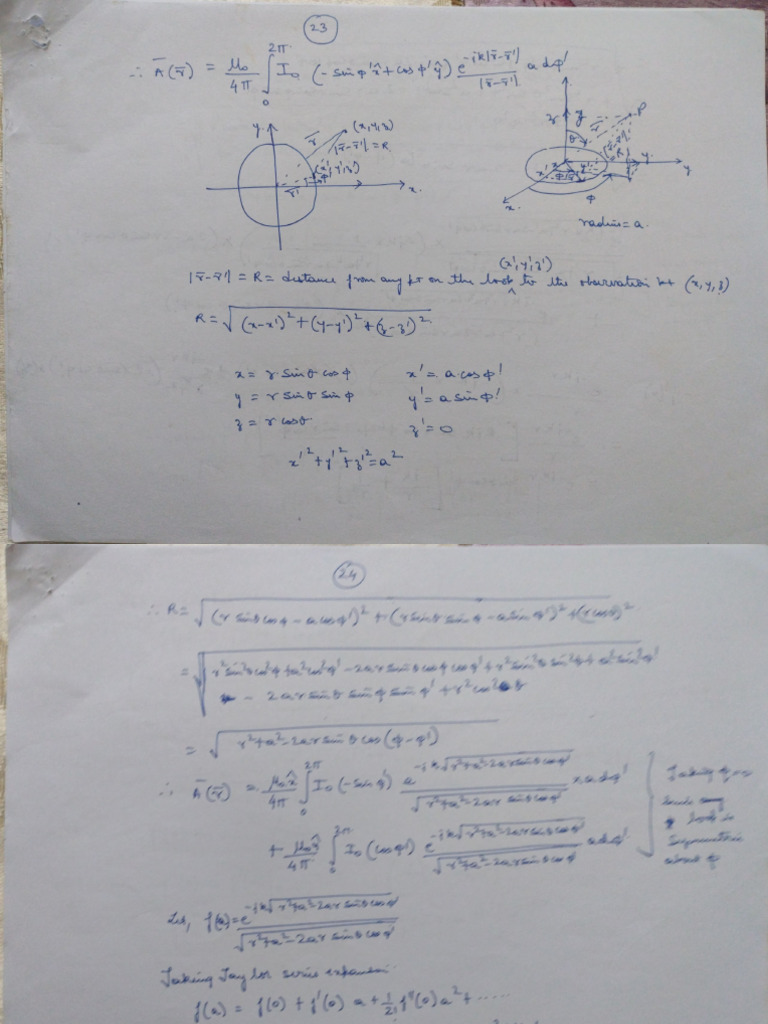 23
∴ Ā(r̄) = μ₀/4π ∫₀^2π I₀ (-sin φ' x̂ + cos φ' ŷ) e^(-jk|r̄-r̄'|)/|r̄-r̄'| a dφ'
y
(x,y,z)
r̄
|r̄-r̄'| = R
(x',y',z')
r̄'
x
z
y
P
θ
r̄
|r̄-r̄'|
R
x'
y'
y
φ
x
radius = a
(x',y',z')
|r̄-r̄'| = R = distance from any pt on the loop to the observation pt (x,y,z)
R = √((x-x')² + (y-y')² + (z-z')²)
x = r sin θ cos φ x' = a cos φ'
y = r sin θ sin φ y' = a sin φ'
z = r cos θ z' = 0
x'² + y'² + z'² = a²
24
∴ R = √((r sin θ cos φ - a cos φ')² + (r sin θ sin φ - a sin φ')² + (r cos θ)²
= √(r² sin² θ cos² φ + a² cos² φ' - 2ar sin θ cos φ cos φ' + r² sin² θ sin² φ + a² sin² φ'
- 2ar sin θ sin φ sin φ' + r² cos² θ
= √(r² + a² - 2ar sin θ cos (φ-φ'))
∴ Ā(r̄) = μ₀x̂/4π ∫₀^2π I₀ (-sin φ') e^(-jk√(r²+a²-2ar sin θ cos φ'))/√(r²+a²-2ar sin θ cos φ') × a dφ'
+ μ₀ŷ/4π ∫₀^2π I₀ (cos φ') e^(-jk√(r²+a²-2ar sin θ cos φ'))/√(r²+a²-2ar sin θ cos φ') a dφ'
Taking φ=0
loop is
symmetric
about φ
Let, f(a) = e^(-jk√(r²+a²-2ar sin θ cos φ'))/√(r²+a²-2ar sin θ cos φ')
Taking Taylor series expansion
f(a) = f(0) + f'(0) a + 1/2! f''(0) a² + ......